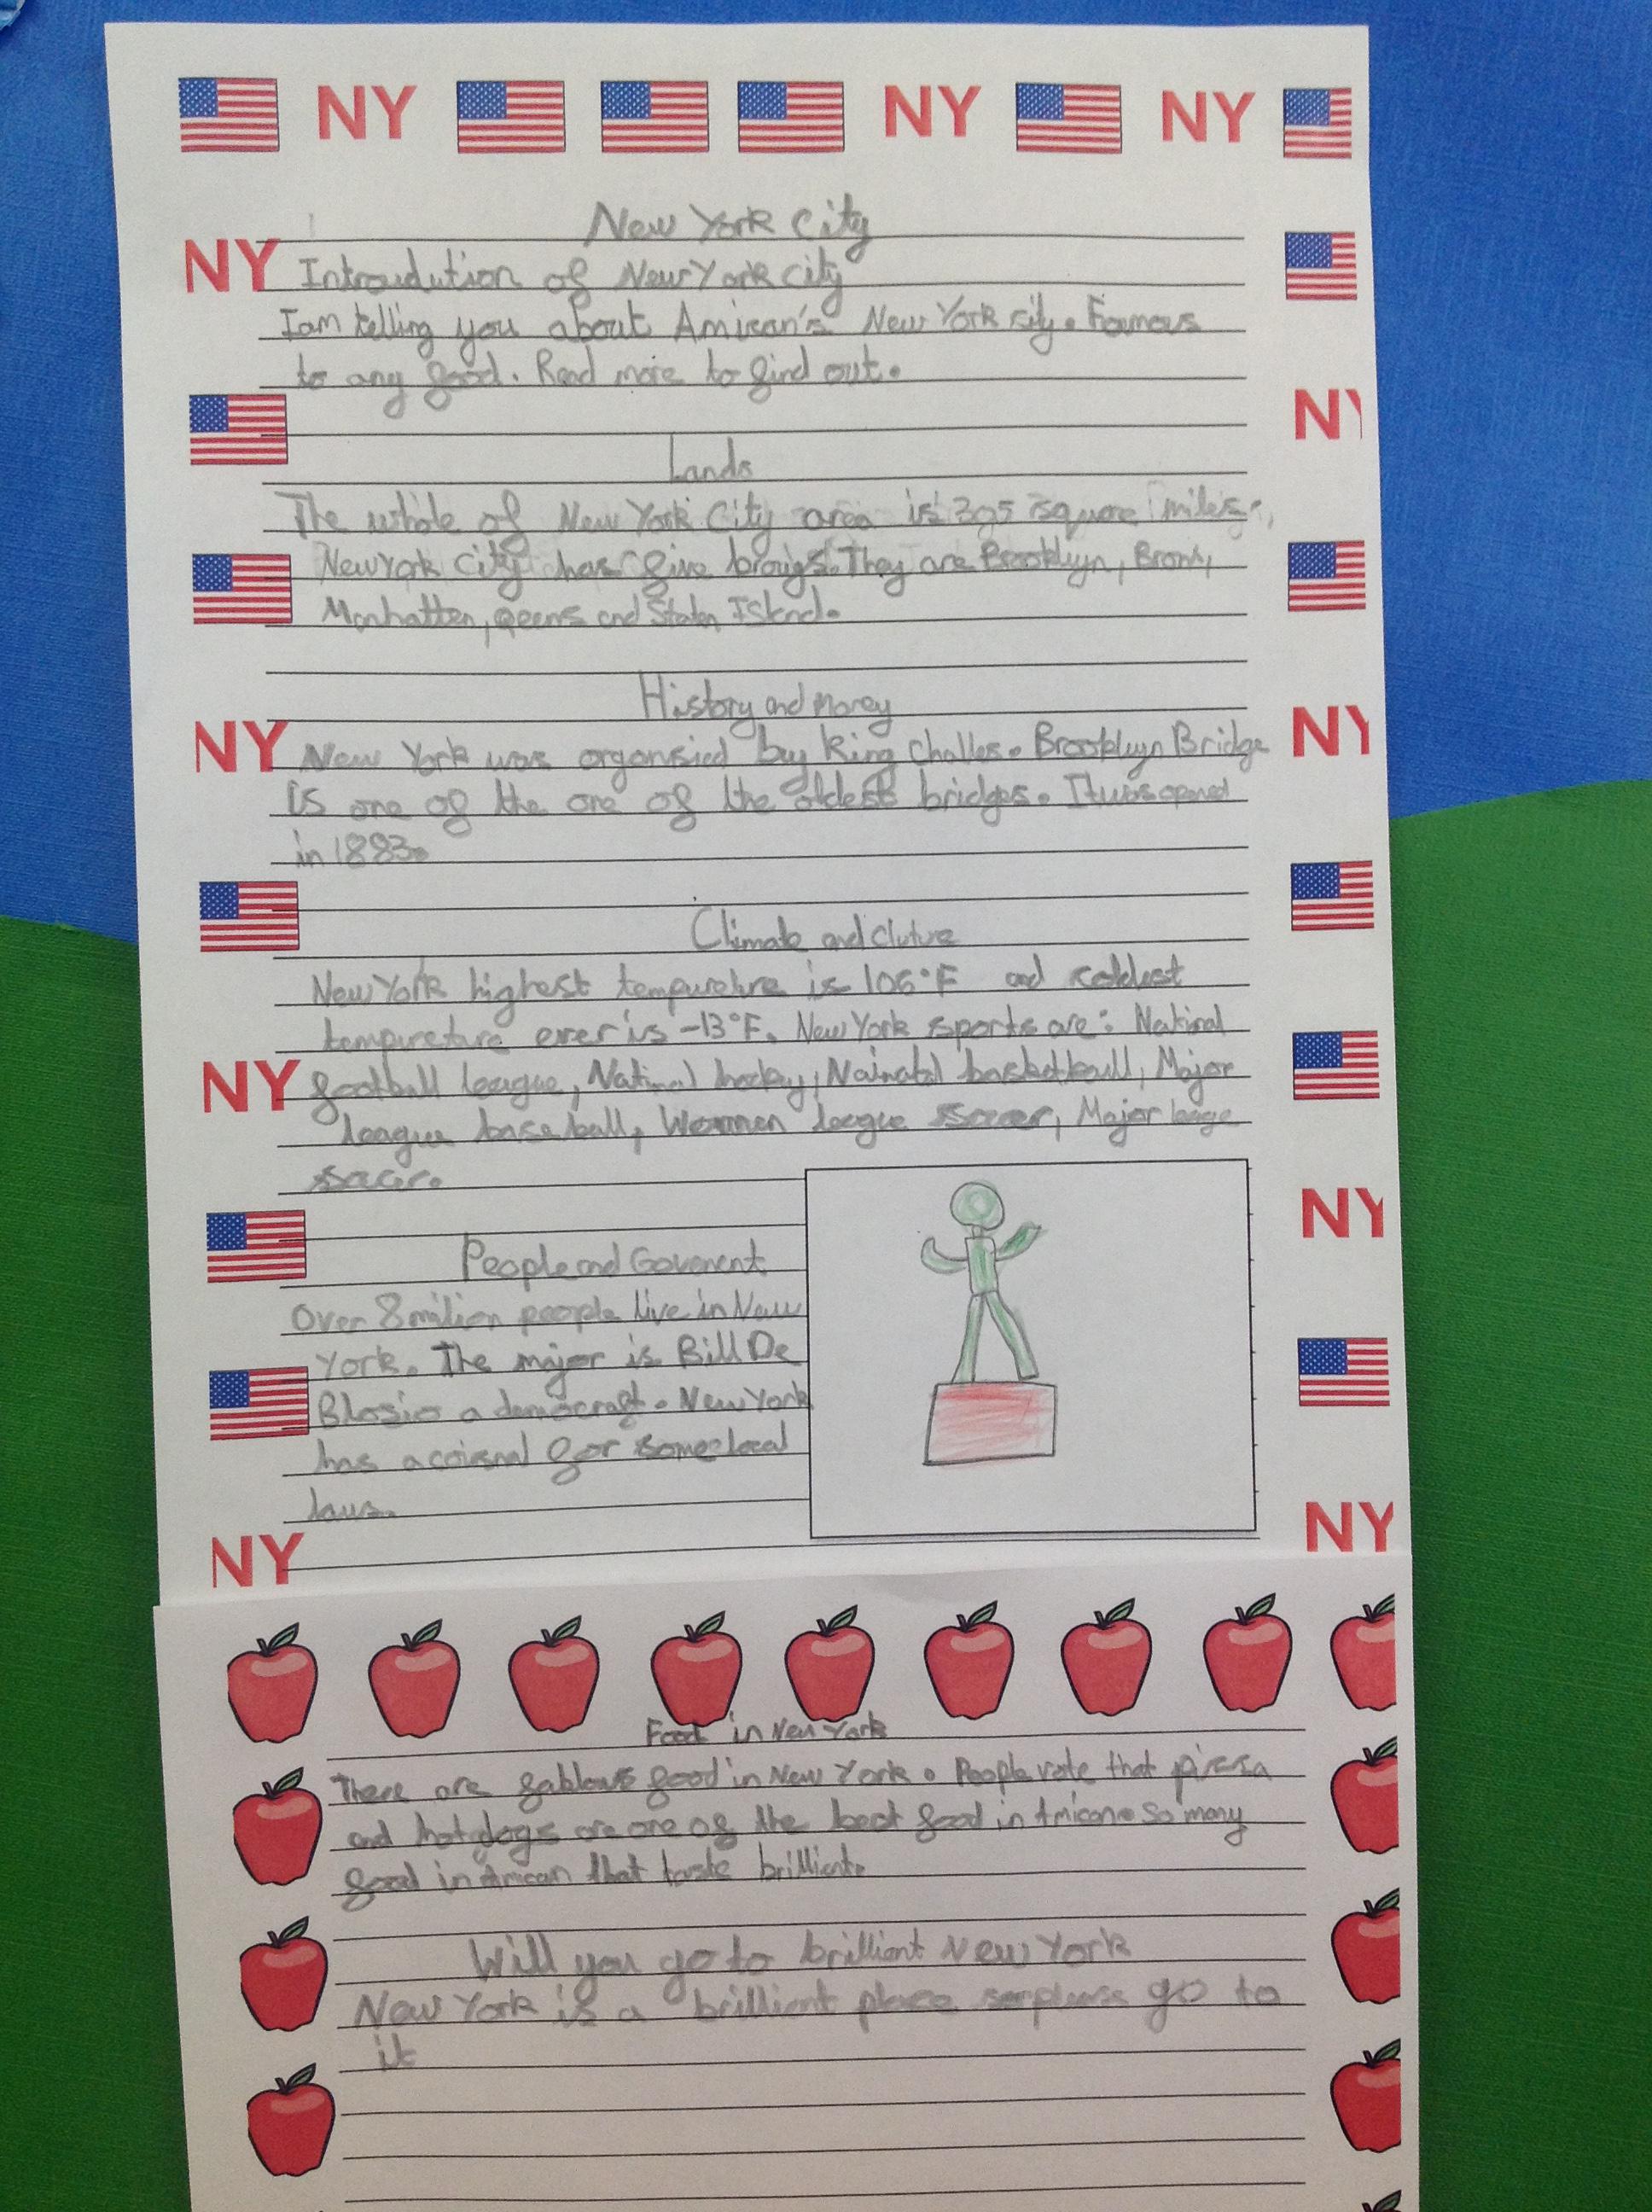 NY NY NY
New York City
NY Introudution of New York city
I am telling you about Amirican's New York city. Famous
to any food. Read more to find out.
NY
Lands
The whole of New York City area is 305 square miles.
New york City has five brougs. They are Brooklyn, Bronx,
Manhatten, Qeens and Staten Island.
History and Money
NY New York was organsied by King Challes. Brooklyn Bridge NY
is one of the one of the oldest bridges. It was opened
in 1883.
Climate and Cluture
New York highest tempureture is 106°F and coldest
tempureture ever is -13°F. New York sports are: National
NY football league, National hockey, Nainatal basketball, Major
league base ball, Women league soccer, Major leage
NY
People and Goverent
Over 8 milion people live in New
York. The major is Bill De
Blasio a democraft. New York
has a for some local
laws.
NY NY
Food in New York
There are fablows food in New York. People vote that pizza
and hotdogs are one of the best food in Amican. So many
food in Amican that taste brilliant.
Will you go to brilliant New York
New York is a brilliant place so please go to
it